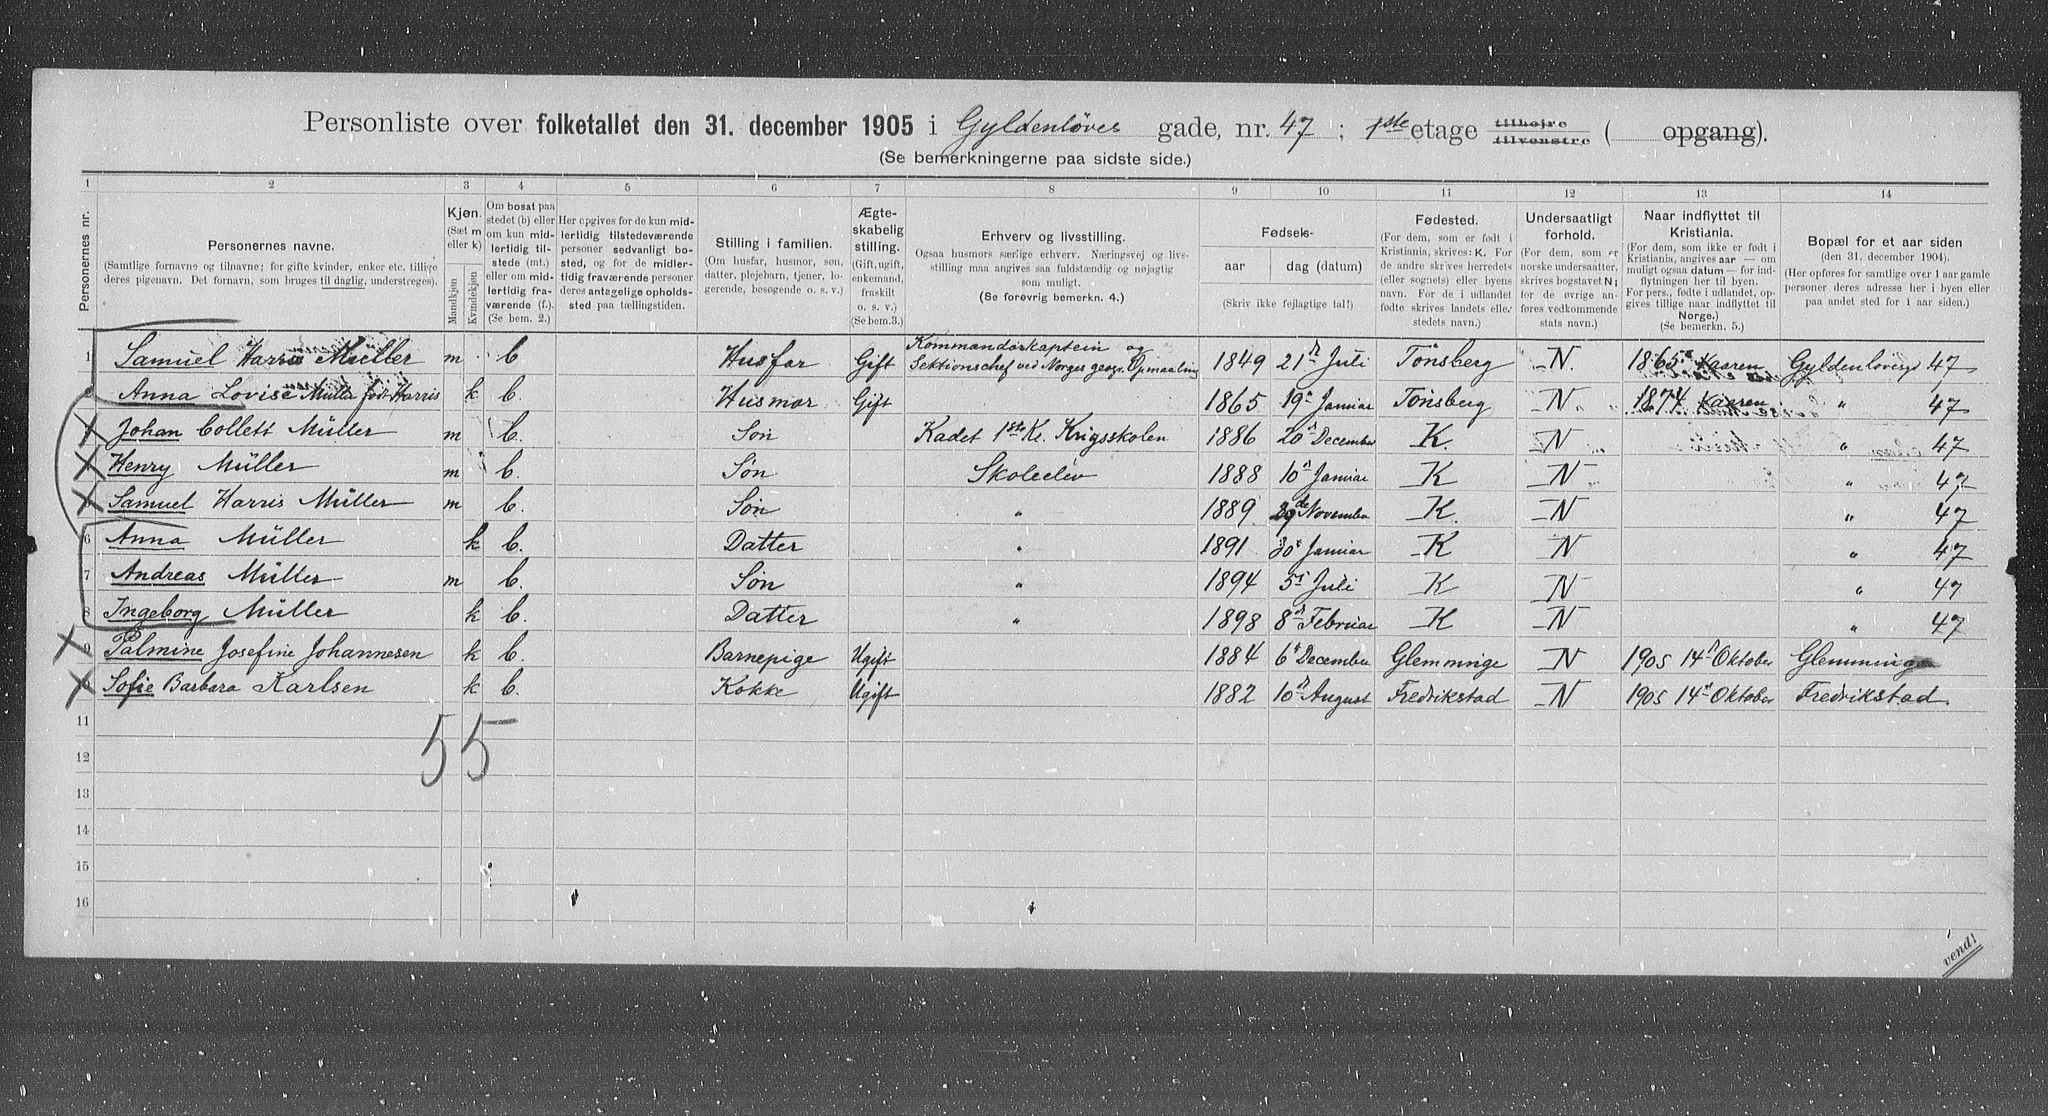 Personliste over folketallet den 31. december 1905 i Gyldenløves gade, nr. 47 ; 1ste etage tilhøjre tilvenstre ( opgang).
(Se bemerkningerne paa sidste side.)
1 2 3 4 5 6 7 8 9 10 11 12 13 14
Personernes nr.
Personernes navne.
(Samtlige fornavne og tilnavne; for gifte kvinder, enker etc. tillige
deres pigenavn. Det fornavn, som bruges til daglig, understreges).
Kjøn.
(Sæt m
eller k)
Mandkjøn
Kvindekjøn
Om bosat paa
stedet (b) eller
om kun mid-
lertidig til-
stede (mt.)
eller om mid-
lertidig fra-
værende (f.).
(Se bem. 2.)
Her opgives for de kun mid-
lertidig tilstedeværende
personer sedvanligt bo-
sted, og for de midler-
tidig fraværende personer
deres antagelige opholds-
sted paa tællingstiden.
Stilling i familien.
(Om husfar, husmor, søn,
datter, plejebarn, tjener, lo-
gerende, besøgende o. s. v.)
Ægte-
skabelig
stilling.
(Gift, ugift,
enkemand,
fraskilt
o. s. v.)
(Se bem.3.)
Erhverv og livsstilling.
Ogsaa husmors særlige erhverv. Næringsvej og livs-
stilling maa angives saa fuldstændig og nøjagtig
som muligt.
(Se forøvrig bemerkn. 4.)
Fødsels-
aar dag (datum)
(Skriv ikke fejlagtige tal!)
Fødested.
(For dem, som er født i
Kristiania, skrives: K. For
de andre skrives herredets
(eller sognets) eller byens
navn. For de i udlandet
fødte skrives landets elle-
stedets navn.)
Undersaatligt
forhold.
(For dem, som er
norske undersaatter,
skrives bogstavet N;
for de øvrige an-
føres vedkommende
stats navn.)
Naar indflyttet til
Kristiania.
(For dem, som ikke er født i
Kristiania, angives aar — om
muligt ogsaa datum — for ind-
flytningen her til byen.
For pers., fødte i udlandet, op-
gives tillige naar indflyttet til
Norge.)
(Se bemerkn. 5.)
Bopæl for et aar siden
(den 31. december 1904).
(Her opføres for samtlige over 1 aar gamle
personer deres adresse her i byen eller
paa andet sted for 1 aar siden.)
Kommandørkaptein og
1 Samuel Harris Mueller m b Husfar Gift Sektionschef ved Norges geogr. Opmaaling 1849 21 Juli Tönsberg N. 1865 Gyldenløvesgd 47
2 Anna Lovise Müller født Harris k b. Husmor Gift 1865 19 Januar Tönsberg N 1874 " 47
Johan Collett Müller m b. Søn Kadet 1ste Kl. Krigsskolen 1886 20 December K. N " 47
Henry Müller m b. Søn Skoleelev 1888 10 Januar K N " 47
Samuel Harris Müller m b. Søn " 1889 29de November K. N " 47
6 Anna Müller k b. Datter " 1891 30 Januar K N " 47
7 Andreas Müller m b. Søn " 1894 5 Juli K N " 47
8 Ingeborg Müller k b. Datter " 1898 8 Februar K N " 47
9 Palmine Josefine Johannesen k b. Barnepige Ugift 1884 6 December Glemminge N 1905 14 Oktober Glemminge
Sofie Barbara Karlsen k b. Kokke Ugift 1882 10 August Fredrikstad N 1905 14 Oktober Fredrikstad.
11
55
12
13
14
15
16
vend!